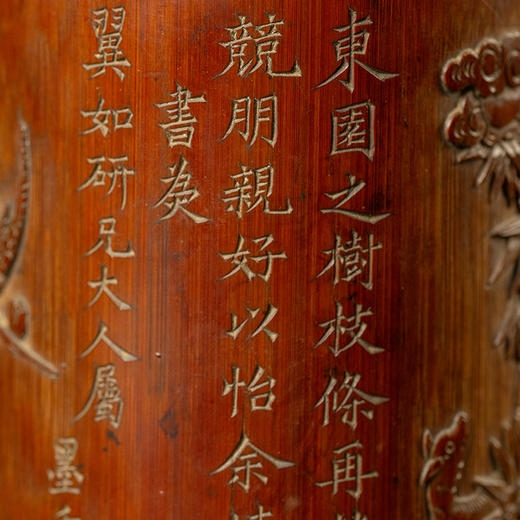 東園之樹枝條再
競朋親好以怡余
書為
翼如研兄大人屬
墨